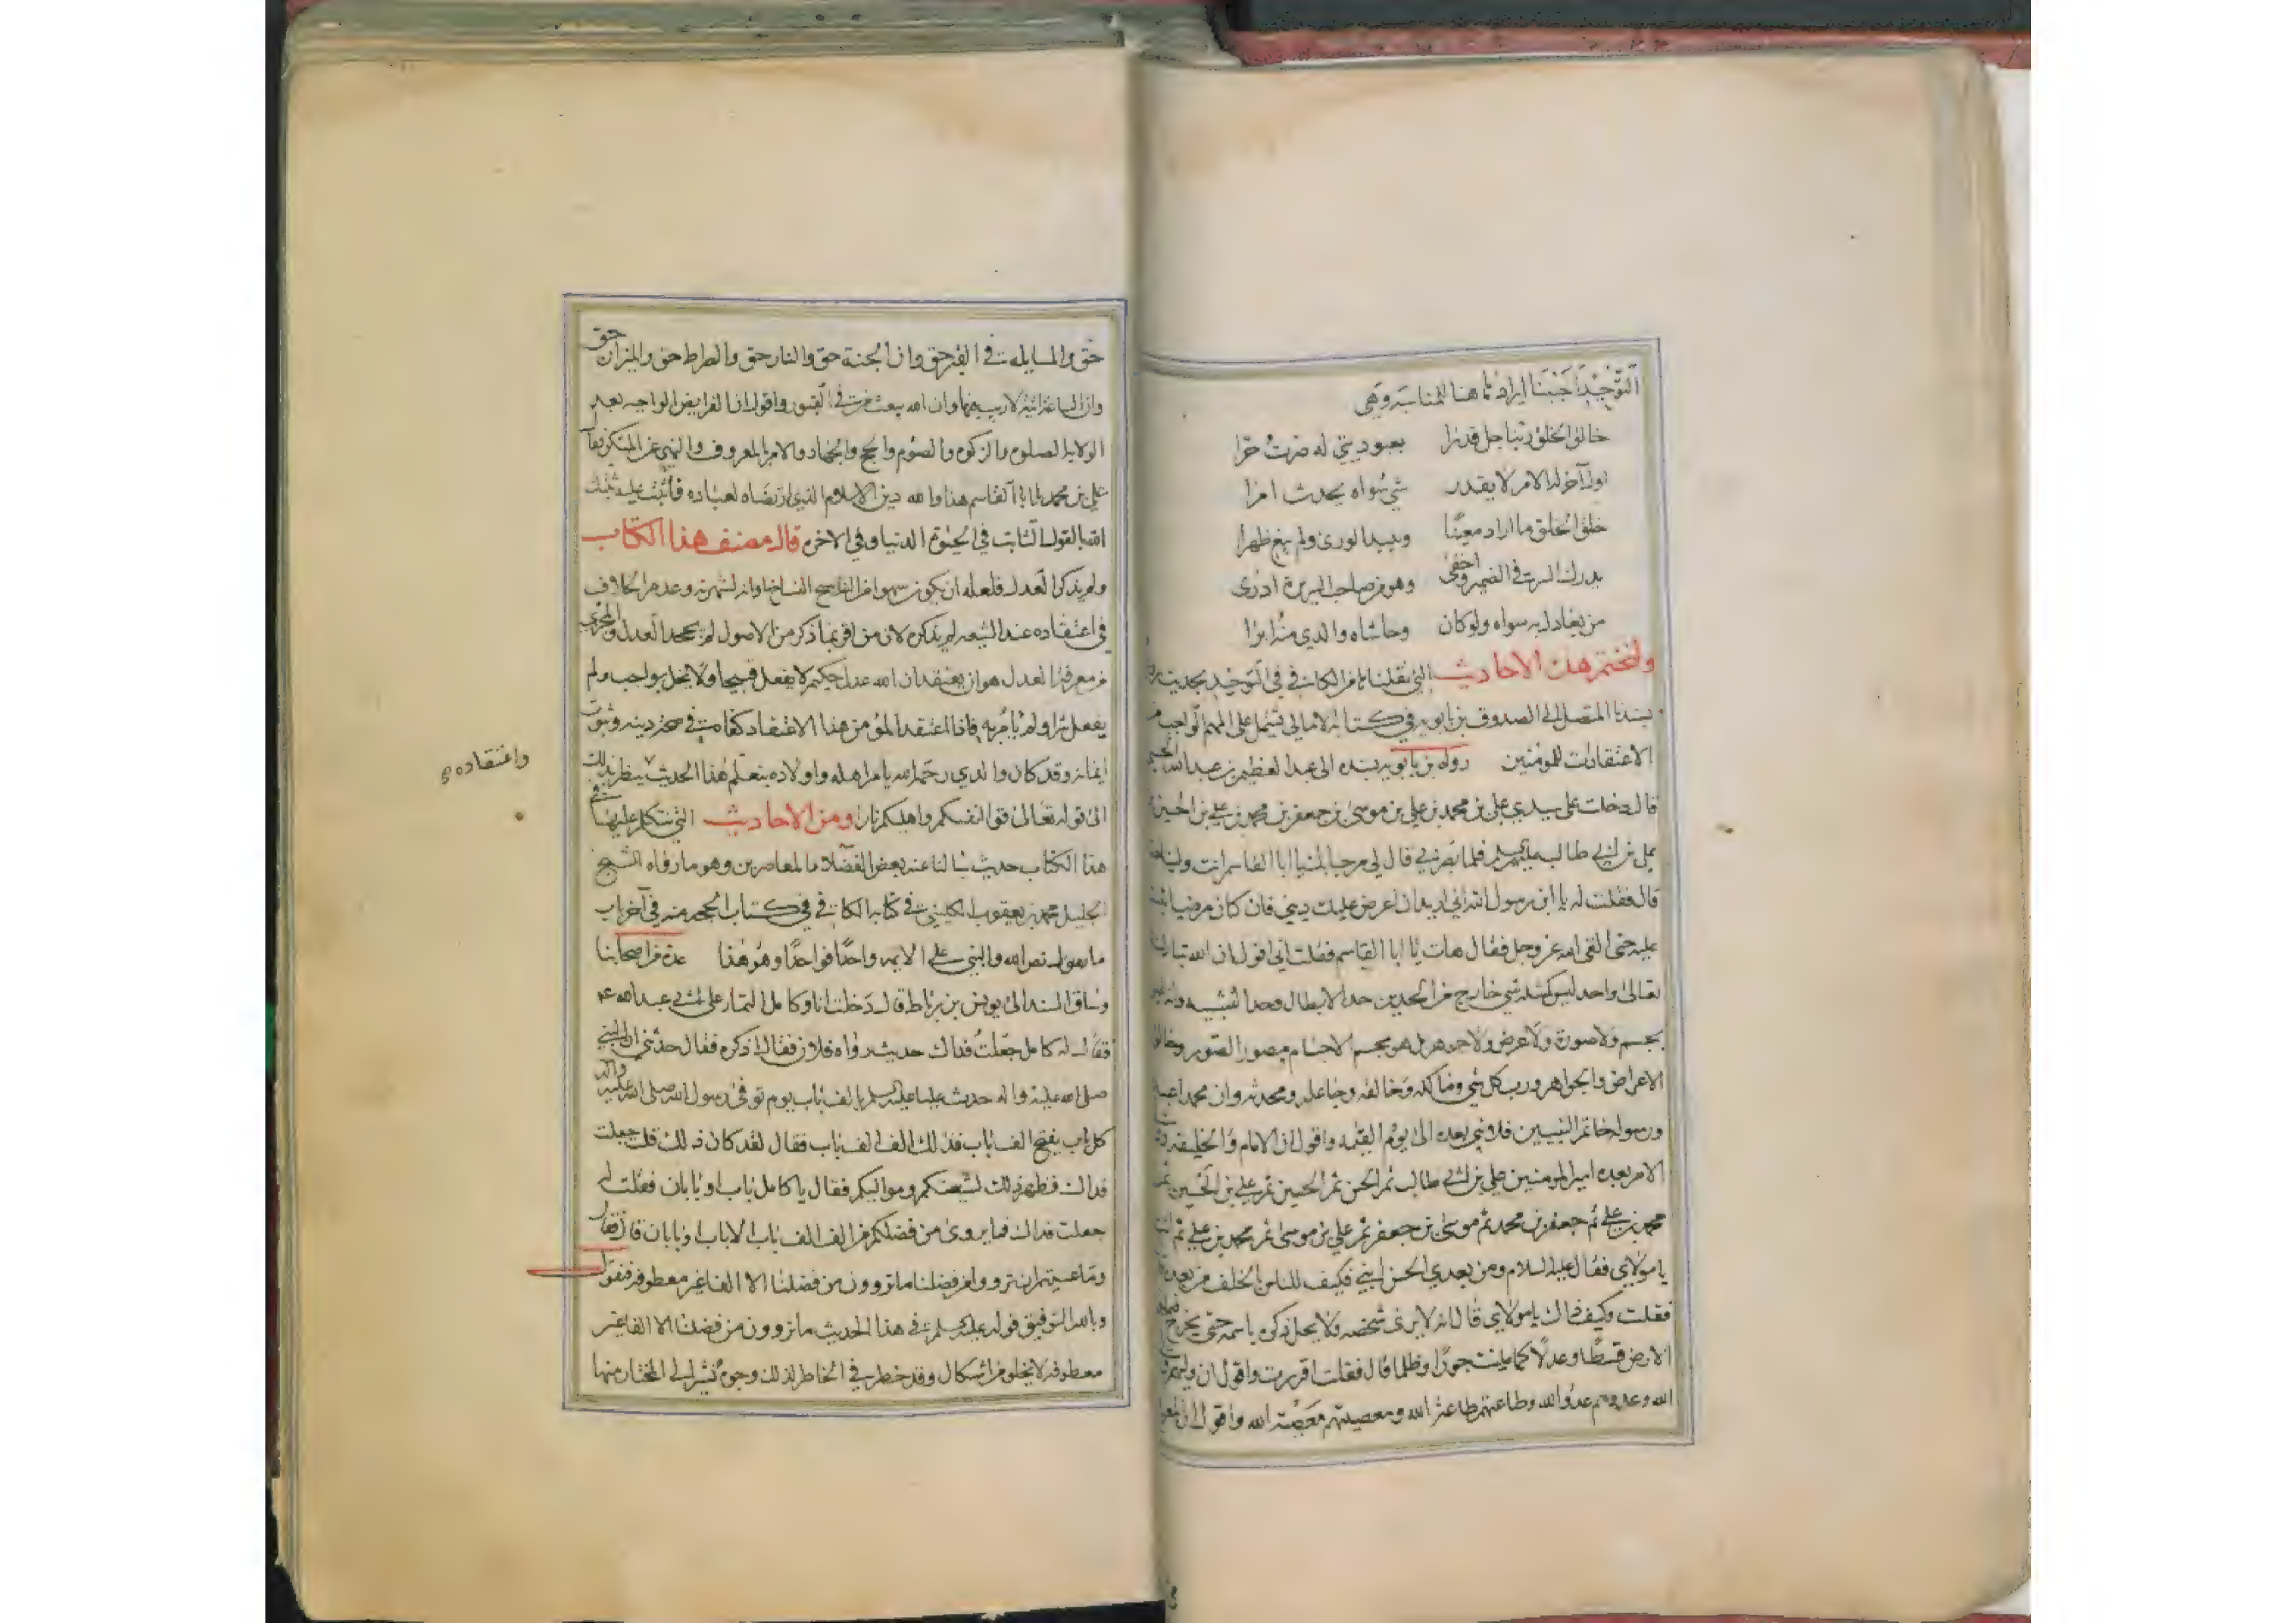 التوحيد احببنا ايرادها هنا للمناسبة وهي
خالق الخلق ربنا جل قدرا بعبوديتي له صرت حرا
اول آخر له الامر لا يقدر شي سواه يحدث امرا
خلق الخلق ما اراد معينا ويبيد الورى ولم يبغ ظهرا
يدرك السر في الضمير واخفى وهو من صاحب السريرة ادرى
من يعادل به سواه ولو كان وحاشاه والدي منه ابرا
ولنختم هذه الاحاديث التي نقلناها من الكافي في التوحيد بحديث
بسندنا المتصل الى الصدوق بن بابويه في كتابه الامالي تشتمل على المهم الواجب من
الاعتقادات للمؤمنين رواه بن بابويه بسنده الى عبد العظيم بن عبد الله الحسيني
قال دخلت على سيدي علي بن محمد بن علي بن موسى بن جعفر بن محمد بن علي بن الحسين
علي بن ابي طالب عليهم السلم فلما بصرني قال لي مرحبا بك يا ابا القاسم انت ولينا
قال فقلت له يا ابن رسول الله اني اريد ان اعرض عليك ديني فان كان مرضيا اثبت
عليه حتى القى الله عز وجل فقال هات يا ابا القاسم فقلت اني اقول ان الله تبارك
تعالى واحد ليس كمثله شي خارج من الحدين حد الابطال وحد التشبيه وانه ليس
بجسم ولا صورة ولا عرض ولا جوهر بل هو مجسم الاجسام ومصور الصور وخالق
الاعراض والجواهر ورب كل شي ومالكه وخالقه وجاعله ومحدثه وان محمدا عبده
ورسوله خاتم النبيين فلا نبي بعده الى يوم القيمة واقول ان الامام والخليفة
الامر بعده امير المومنين علي بن ابي طالب ثم الحسن ثم الحسين ثم علي بن الحسين ثم
محمد بن علي ثم جعفر بن محمد ثم موسى بن جعفر ثم علي بن موسى ثم محمد بن علي ثم انت
يا مولاي فقال عليه السلام ومن بعدي الحسن ابني فكيف للناس بالخلف من بعده
فقلت وكيف ذاك يا مولاي قال لانه لا يرى شخصه ولا يحل ذكره باسمه حتى يخرج فيملا
الارض قسطا وعدلا كما ملئت جورا وظلما قال فقلت اقررت واقول ان وليهم ولي
الله وعدوهم عدو الله وطاعتهم طاعة الله ومعصيتهم معصية الله واقول ان المعراج
حق والمسايلة في القبر حق وان الجنة حق والنار حق والصراط حق والميزان حق
وان الساعة اتية لا ريب فيها وان الله يبعث من في القبور واقول ان الفرايض الواجبة بعد
الولاية الصلوة والزكوة والصوم والحج والجهاد والامر بالمعروف والنهي عن المنكر فقال
علي بن محمد يا ابا القاسم هذا والله دين الاسلام الذي ارتضاه لعباده فاثبت عليه ثبتك
الله بالقول الثابت في الحيوة الدنيا وفي الاخرة قال مصنف هذا الكتاب
ولم يذكر العدل فلعله ان يكون سهوا من الناسخ او انه لشهرته وعدم الخلاف
في اعتقاده عند الشيعة لم يذكره لان من اقر بما ذكر من الاصول لم يجحد العدل والمجزي
من معرفة العدل هو ان يعتقد ان الله عدل حكيم لا يفعل قبيحا ولا يخل بواجب ولم
يفعل شرا ولم يامر به فاذا اعتقد المؤمن هذا الاعتقاد كفاه في صحة دينه وثبوت
ايمانه وقد كان والدي رحمه الله يامر اهله واولاده بتعلم هذا الحديث ينظر بذلك
واعتقاده
الى قوله تعالى قوا انفسكم واهليكم نارا ومن الاحاديث التي نتكلم عليها في
هذا الكتاب حديث سالنا عنه بعض الفضلاء المعاصرين وهو ما رواه الشيخ
الجليل محمد بن يعقوب الكليني في كتابه الكافي في كتاب الحجة منه في آخر باب
ما نص الله والنبي على الايمة واحدا فواحدا وهو هذا عدة من اصحابنا
وساق السند الى يونس بن رباط قال دخلت انا وكامل التمار على ابي عبد الله ع
فقال له كامل جعلت فداك حديث رواه فلان فقال اذكره فقال حدثني ان النبي
صلى الله عليه واله حدث عليا عليه السلم بالف باب يوم توفى رسول الله صلى الله عليه واله
كل باب يفتح الف باب فذلك الف الف باب فقال لقد كان ذلك قلت جعلت
فداك فظهر ذلك لشيعتكم ومواليكم فقال يا كامل باب او بابان فقلت له
جعلت فداك فما يروى من فضلكم من الف الف باب الا باب او بابان قال فقال
وما عسيتم ان ترووا من فضلنا ما تروون من فضلنا الا الفا غير معطوفة فنقول
وبالله التوفيق قوله عليه السلم في هذا الحديث ما تروون من فضلنا الا الفا غير
معطوفة لا يخلو من اشكال وقد خطر في الخاطر لذلك وجوه نشير الى المختار منها